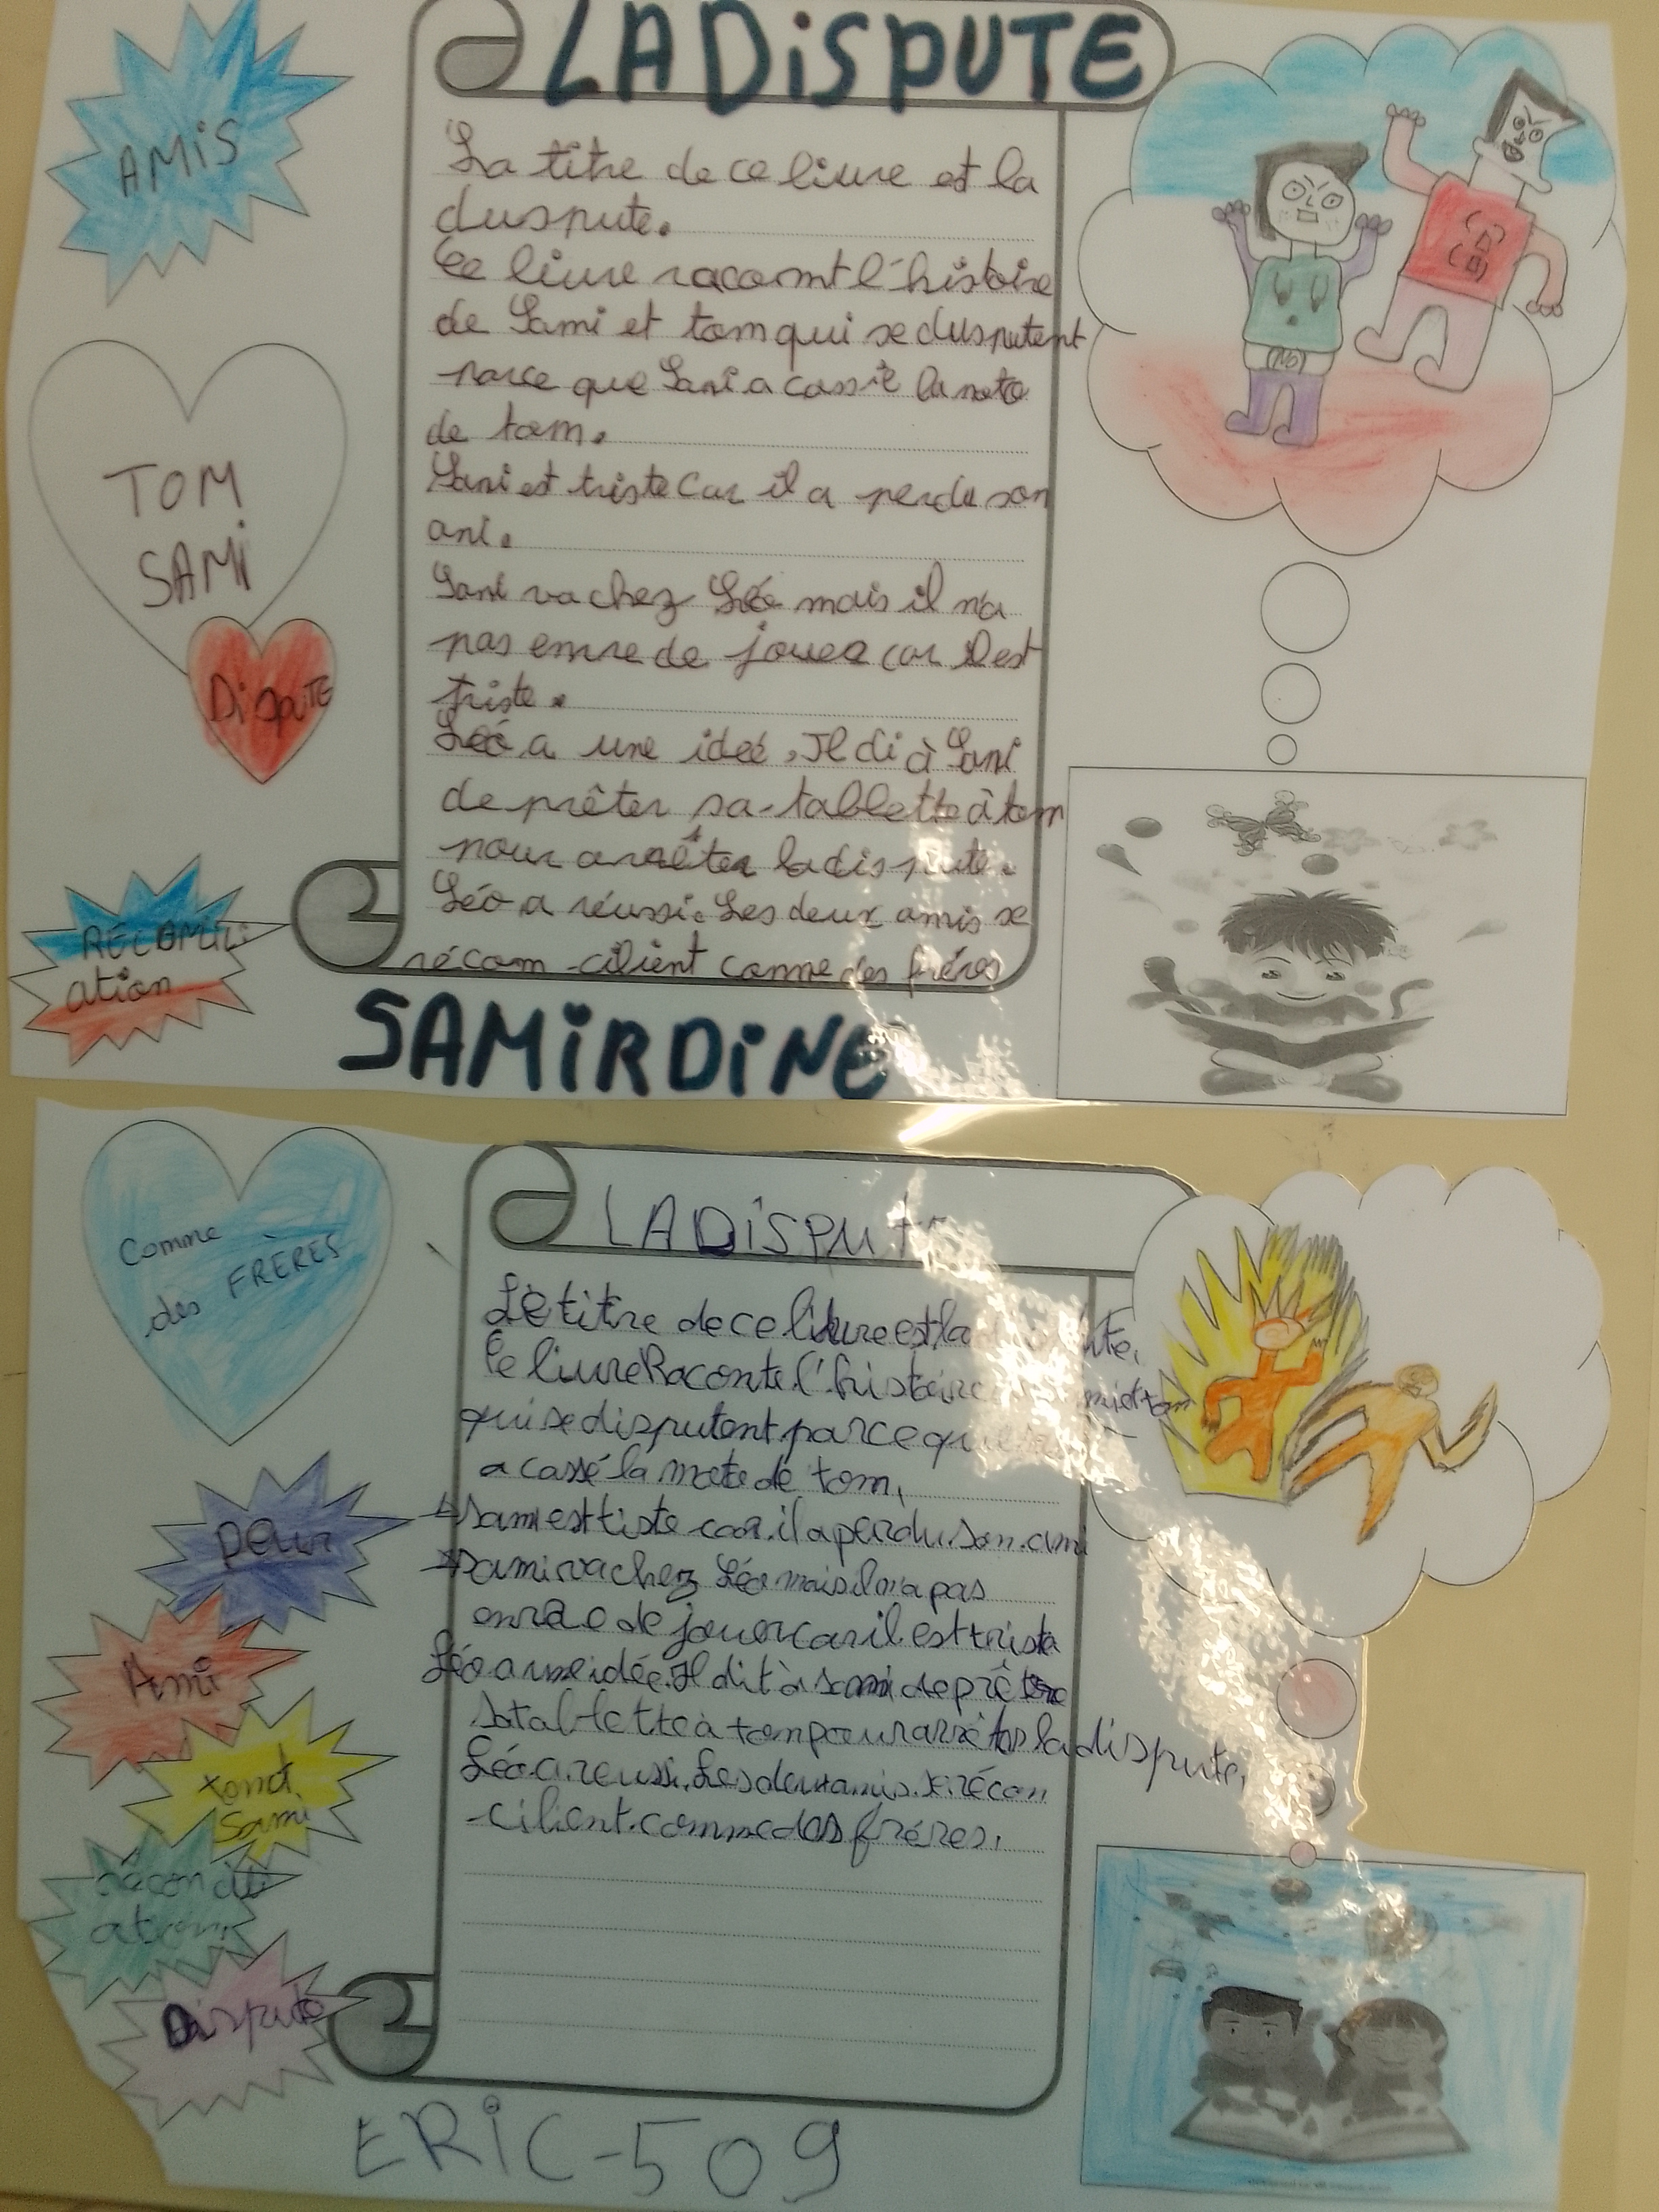 LA DiSPUTE
AMiS
La titre de ce livre est la
duspute.
Ce livre racomt l'histoire
de Sami et tom qui se dusputent
parce que Sami a cassé la moto
de tom.
Sami est triste Car il a perdu son
ami.
Sami va chez Léo mais il n'a
pas envie de jouer car il est
triste.
Léo a une idée, Il di à Sami
de prêter sa tablette à tom
pour arrêter la dispute.
Léo a réussi. Les deux amis se
récom-cilient comme des frères
TOM
SAMi
DispuTE
RECOMiLi
ation
SAMiRDiNE
Comme
des FRÈRES
LA DiSPUT
Le titre de ce livre est la
Ce livre Raconte l'histoire
qui se disputent parce que
a cassé la moto de tom,
sami est tiste car il a perdu son ami
sami va chez Léo mais il n'a pas
envie de jouer car il est triste
Léo a une idée. Il dit à sami de prêter
sa tablette à tom pour arrêter la dispute,
Léo a reussi. Les deux amis se récon
-cilient comme des frères.
peur
Ami
tom et
Sami
réconcili
ation
Dispute
ERiC-509